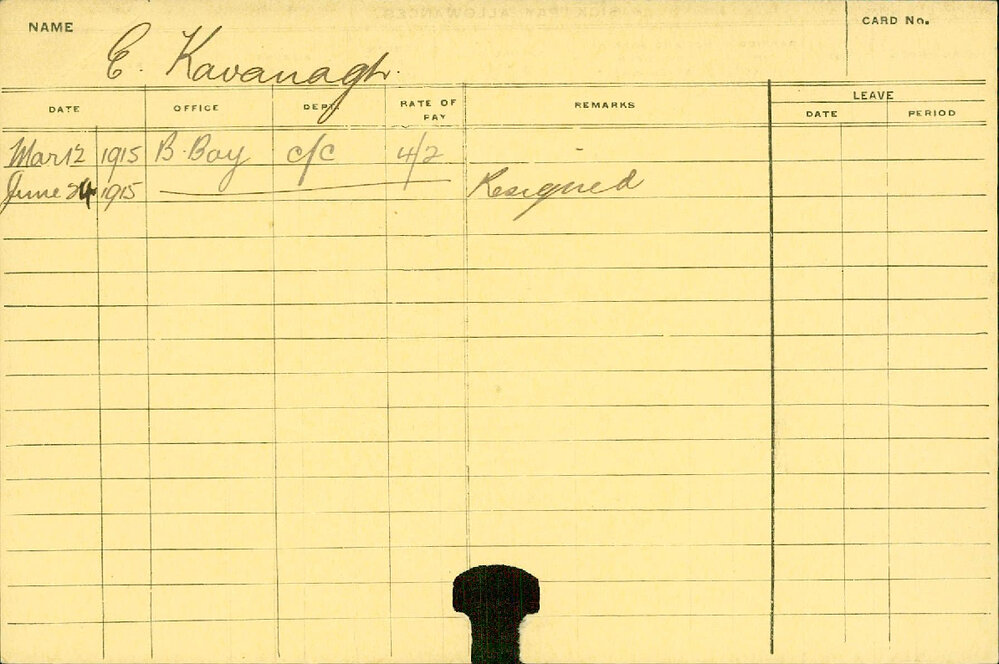 NAME E. Kavanagh. CARD No.
DATE OFFICE DEPT. RATE OF PAY REMARKS LEAVE
DATE PERIOD
Mar 12 1915 B. Boy c/c 4/2
June 24 1915 Resigned